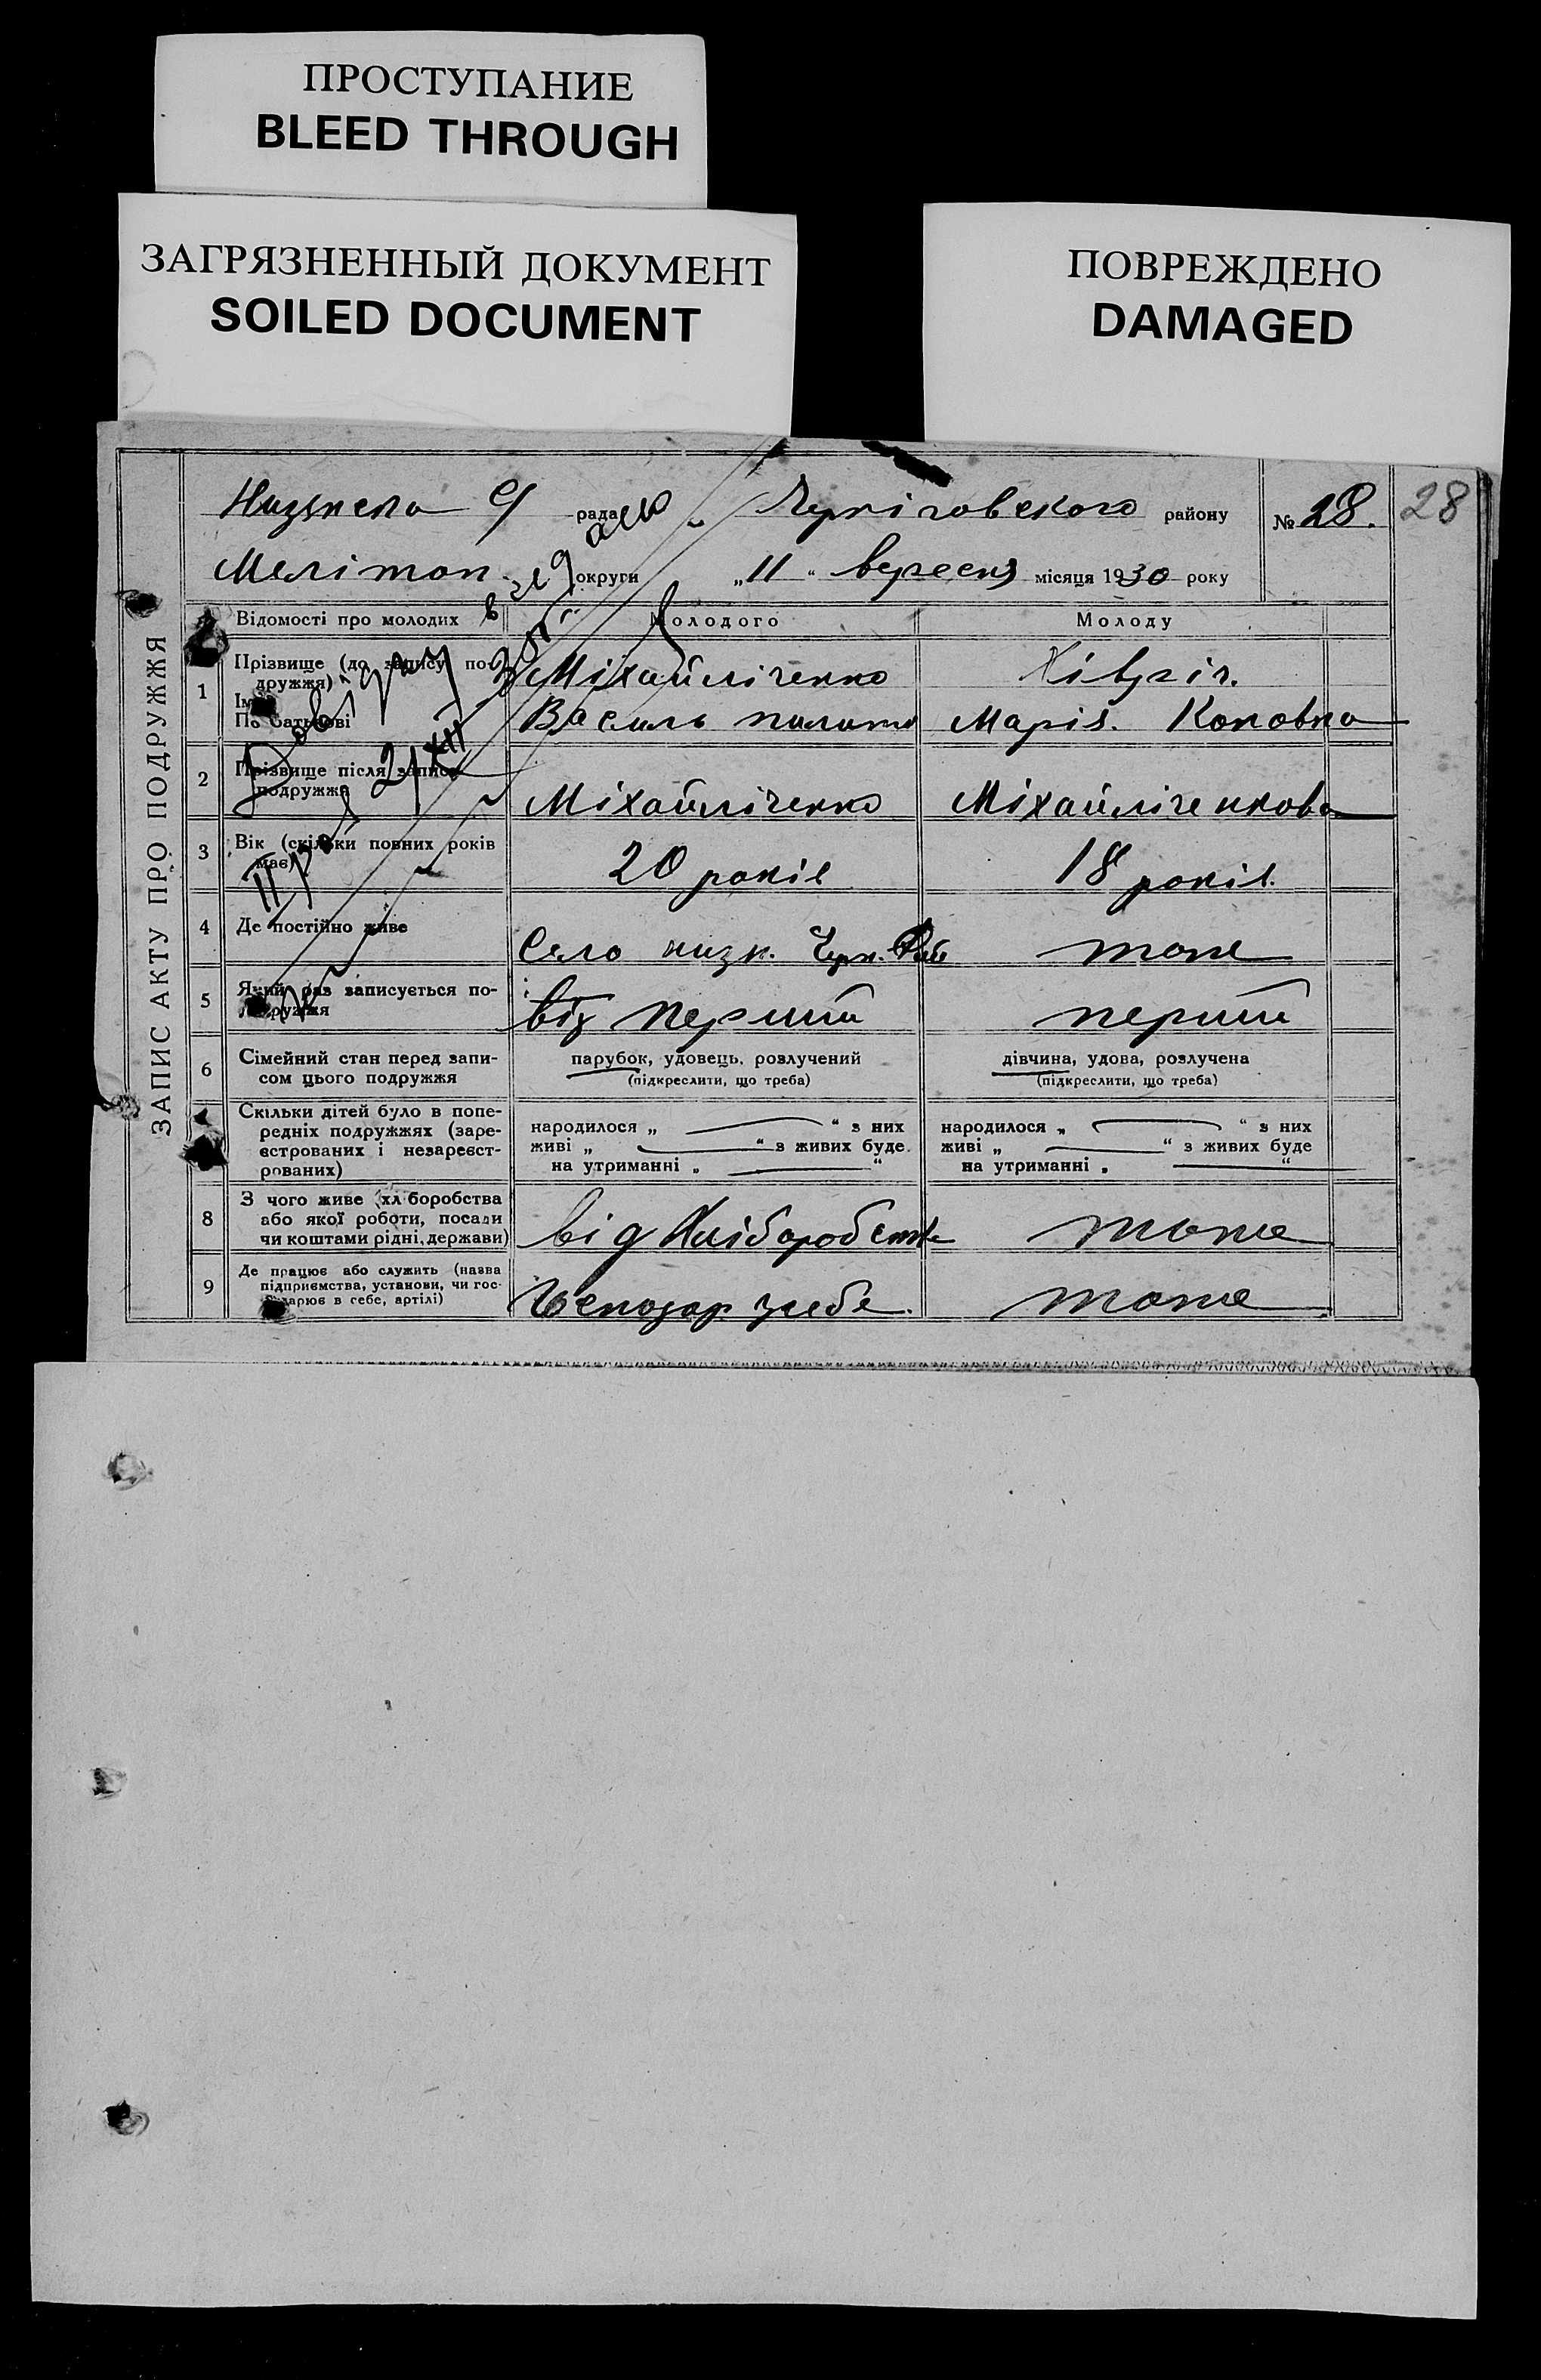 ПРОСТУПАНИЕ
BLEED THROUGH
ЗАГРЯЗНЕННЫЙ ДОКУМЕНТ
SOILED DOCUMENT
ПОВРЕЖДЕНО
DAMAGED
ЗАПИС АКТУ ПРО ПОДРУЖЖЯ
рада Черніговского району № 28. 28
Мелітоп. округи „11“ вересня місяця 1930 року
Відомості про молодих Молодого Молоду
1 Прізвище (до запису подружжя) Міхайліченко
Ім'я
По батькові Василь Марія.
2 Прізвище після запису подружжя Міхайліченко Міхайліченкова
3 Вік (скільки повних років має) 20 років 18 років.
4 Де постійно живе Село низк. Черн. тоже
5 Який раз записується подружжя перший перший
6 Сімейний стан перед записом цього подружжя парубок, удовець, розлучений дівчина, удова, розлучена
(підкреслити, що треба) (підкреслити, що треба)
Скільки дітей було в попередніх подружжях (зареєстрованих і незареєстрованих)
народилося „ “ з них народилося „ “ з них
живі „ “ з живих буде живі „ “ з живих буде
на утриманні „ “ на утриманні „ “
8 З чого живе (хліборобства або якої роботи, посади чи коштами рідні, держави) від Хліборобства тоже
9 Де працює або служить (назва підприємства, установи, чи господарює в себе, артілі) Господар. у себе. тоже